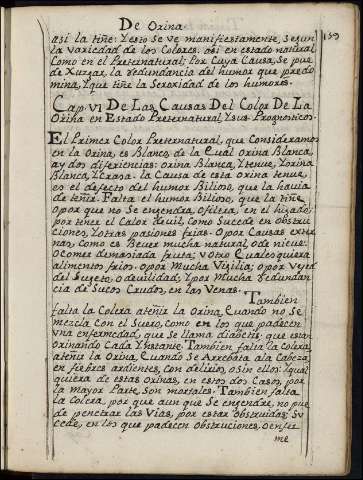 De Orina
150
asi la tiñe: Y esto se ve manifiestamente, segun
la variedad de los Colores, asi en estado natural
Como en el Preternatural; Por Cuya Causa, Se pue
de Xuzgar, la redundancia del humor que predo
mina, Y que tiñe la Serosidad de los humores.
Cap. VI De Las Causas Del Color De La
Orina en Estado Preternatural, Y sus Prognosticos.
El Primer Color Preternatural, que Consideramos
en la Orina, es Blanco, de la Cual Orina Blanca,
ay dos diferiencias: Orina Blanca, Y tenue, Y orina
Blanca, Y Crasa. la Causa de esta Orina tenue,
es el defecto del humor Bilioso, que la havia
de teñir. Falta el humor Bilioso, que la tiñe
O por que no Se engendra, O filtra, en el higado;
por tener el Calor devil, Como Sucede en obstruc
ciones, Y otras pasiones frias. O por Causas exter
nas, como es Bever mucha natural, o de nieve:
O Comer demasiada fruta; V otro Cualesquiera
alimentos frios. O por Mucha Vigilia; O por Vejez
del Sugeto, O devilidad, Y por Mucha redundan
cia de Sucos Crudos, en las Venas.
Tambien
falta la Colera atenir la Orina, Cuando no Se
mezcla con el Suero, como en los que padecen
vna enfermedad, que se llama diabetis; que estan
Orinando Cada Ynstante. Tambien falta la Colera
atenir la Orina, Cuando Se Arrebata ala Cabeza,
en fiebres ardientes, Con delirios, o Sin ellos: Y qual
quiera de estas Orinas, en estos dos Casos, por
la mayor Parte, Son mortales. Tambien falta
la Colera, por que aun que Se engendre, no pue
de penetrar las Vias, por estar Obstruidas; Su
cede, en los que padecen Obstruciones. O enfer
me